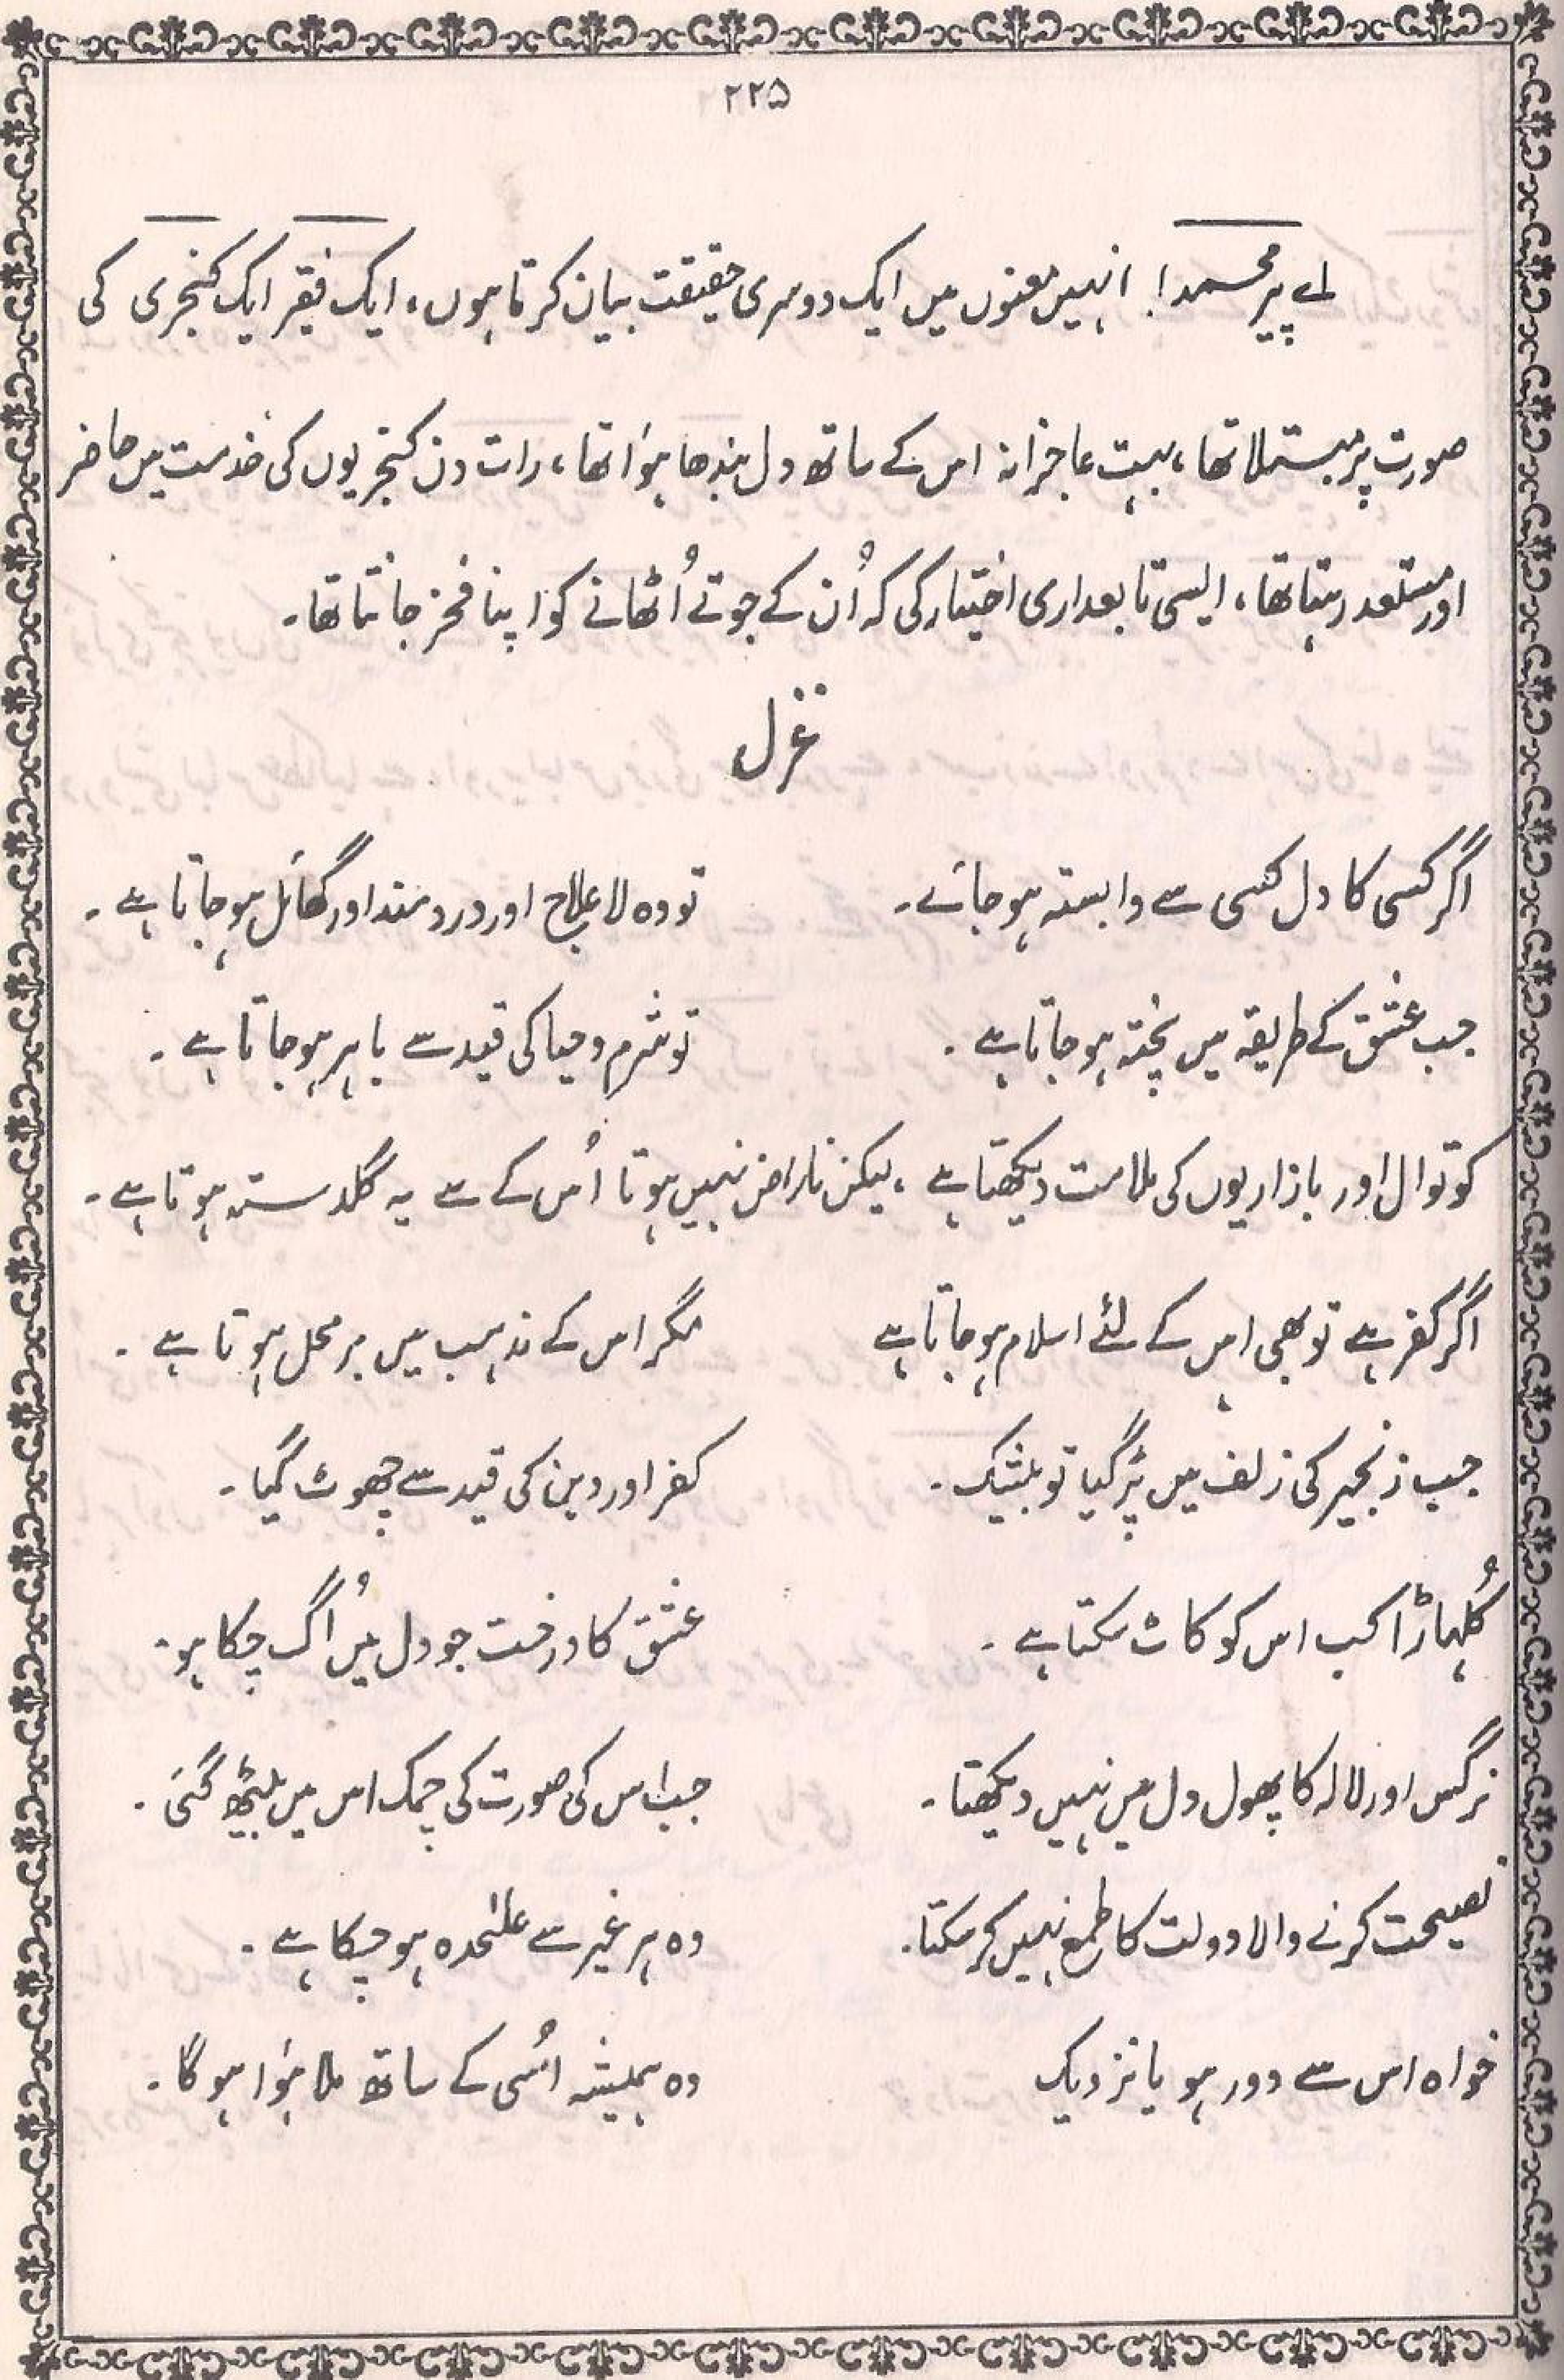 ۲۲۵
اے پیر محمد! انہیں معنوں میں ایک دوسری حقیقت بیان کرتا ہوں، ایک فقیر ایک کنجری کی
صورت پر مبتلا تھا، بہت عاجزانہ اس کے ساتھ دل بندھا ہوٴا تھا، رات دن کنجریوں کی خدمت میں حاضر
اور مستعد رہتا تھا، ایسی تابعداری اختیار کی کہ اُن کے جوتے اُٹھانے کو اپنا فخر جانتا تھا۔
غزل
اگر کسی کا دل کسی سے وابستہ ہو جائے۔ تو وہ لا علاج اور دردمند اور گھائل ہو جاتا ہے۔
جب عشق کے طریقہ میں پختہ ہو جاتا ہے۔ تو شرم و حیا کی قید سے باہر ہو جاتا ہے۔
کوتوال اور بازاریوں کی ملامت دیکھتا ہے، لیکن ناراض نہیں ہوتا اُس کے سے یہ گلدستہ ہوتا ہے۔
اگر کفر ہے تو بھی اس کے لئے اسلام ہو جاتا ہے مگر اس کے مذہب میں بر محل ہوتا ہے۔
جب زنجیر کی زلف میں پڑ گیا تو بیشک۔ کفر اور دین کی قید سے چھوٹ گیا۔
کُلہاڑا کب اس کو کاٹ سکتا ہے۔ عشق کا درخت جو دل میں اُگ چکا ہو۔
نرگس اور لالہ کا پھول دل میں نہیں دیکھتا۔ جب اس کی صورت کی چمک اس میں بیٹھ گئی۔
نصیحت کرنے والا دولت کا طمع نہیں کر سکتا۔ وہ ہر غیر سے علٰحدہ ہو چکا ہے۔
خواہ اس سے دور ہو یا نزدیک وہ ہمیشہ اُسی کے ساتھ ملا ہوٴا ہو گا۔